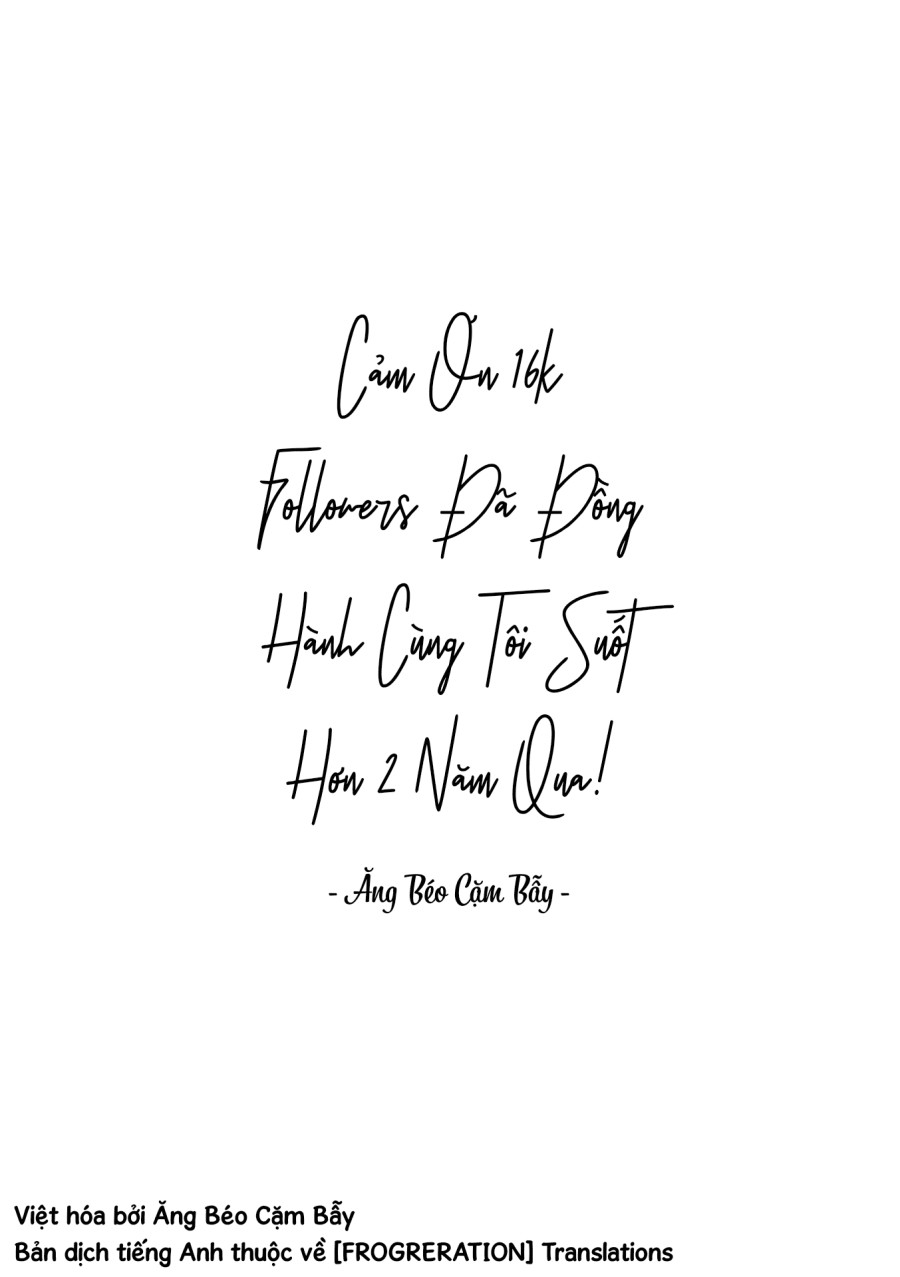 Cảm Ơn 16k
Followers Đã Đồng
Hành Cùng Tôi Suốt
Hơn 2 Năm Qua!
- Ăng Béo Cặm Bẫy -
Việt hóa bởi Ăng Béo Cặm Bẫy
Bản dịch tiếng Anh thuộc về [FROGRERATION] Translations